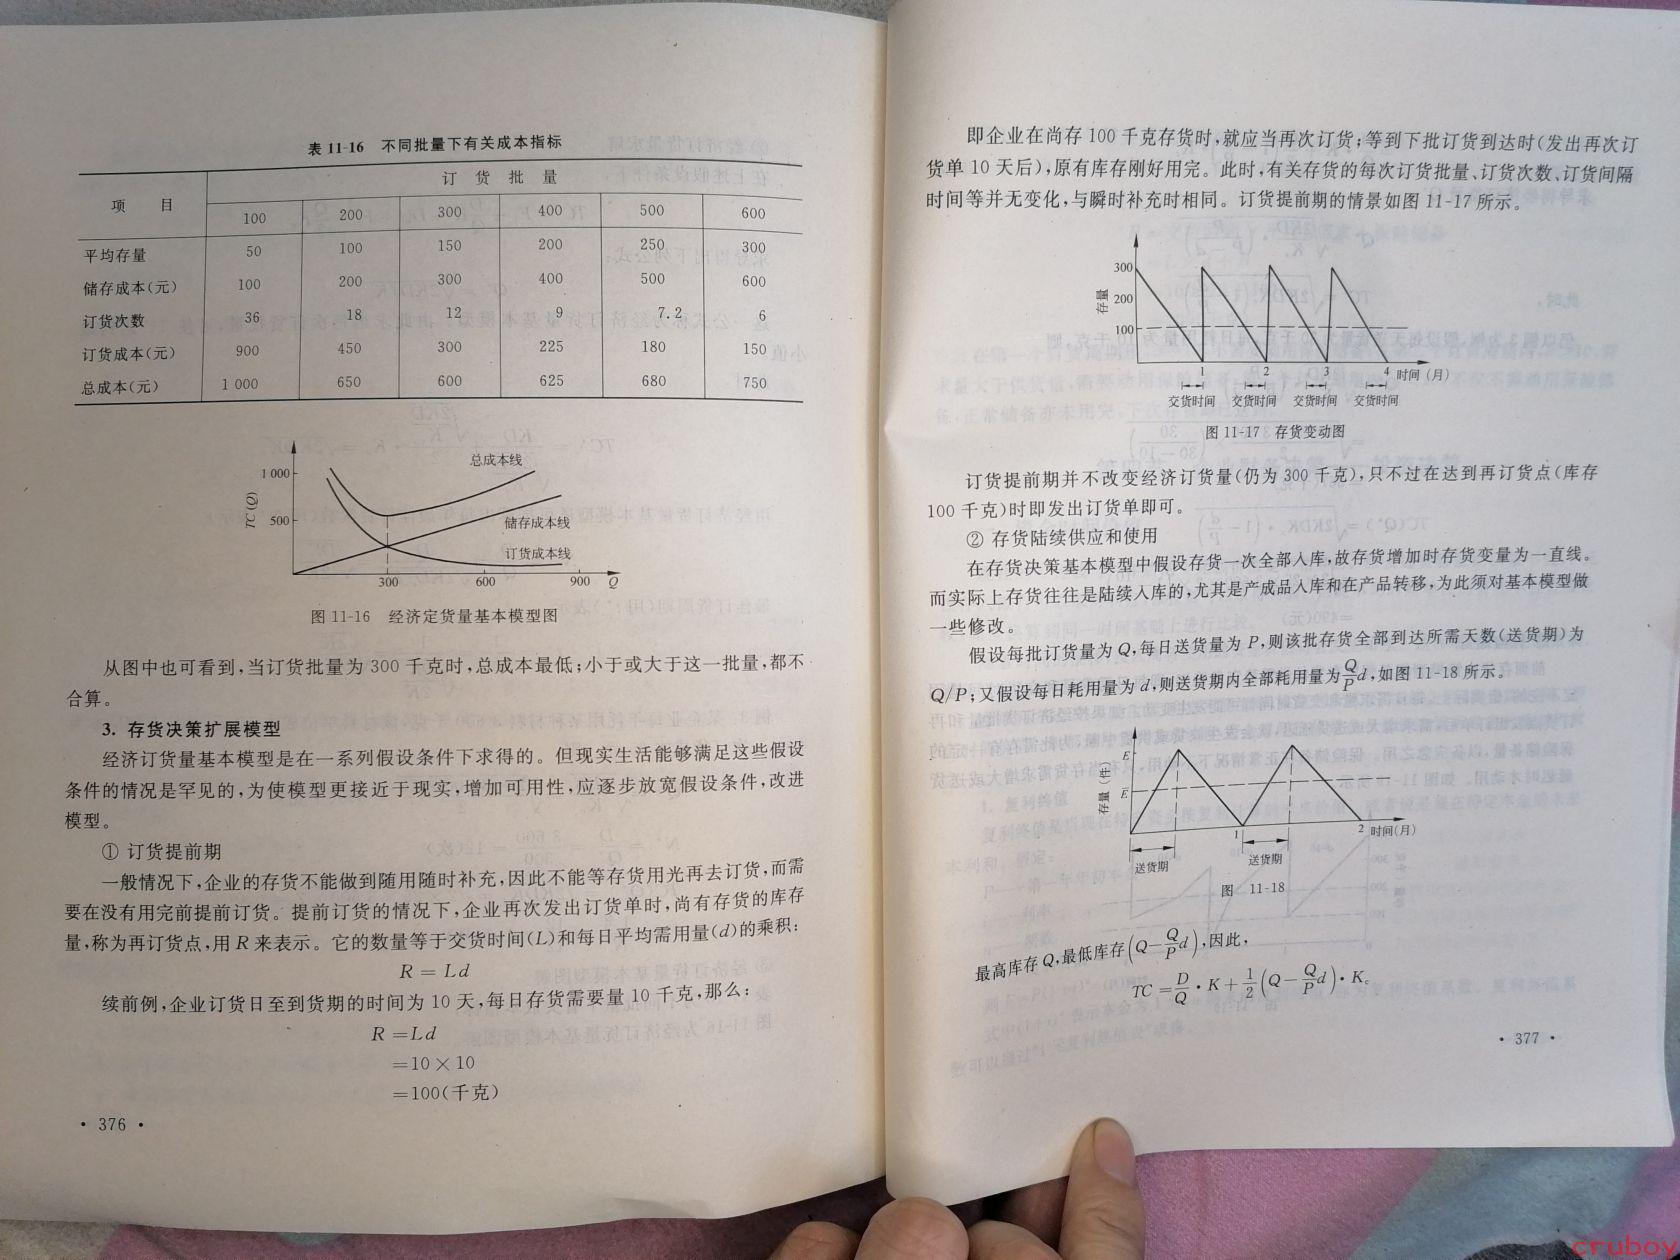 表 11-16 不同批量下有关成本指标
项 目
订 货 批 量
100 200 300 400 500 600
平均存量 50 100 150 200 250 300
储存成本(元) 100 200 300 400 500 600
订货次数 36 18 12 9 7.2 6
订货成本(元) 900 450 300 225 180 150
总成本(元) 1 000 650 600 625 680 750
TC(Q)
1 000
500
总成本线
储存成本线
订货成本线
300 600 900 Q
图 11-16 经济定货量基本模型图
从图中也可看到,当订货批量为 300 千克时,总成本最低;小于或大于这一批量,都不
合算。
3. 存货决策扩展模型
经济订货量基本模型是在一系列假设条件下求得的。但现实生活能够满足这些假设
条件的情况是罕见的,为使模型更接近于现实,增加可用性,应逐步放宽假设条件,改进
模型。
① 订货提前期
一般情况下,企业的存货不能做到随用随时补充,因此不能等存货用光再去订货,而需
要在没有用完前提前订货。提前订货的情况下,企业再次发出订货单时,尚有存货的库存
量,称为再订货点,用 R 来表示。它的数量等于交货时间(L)和每日平均需用量(d)的乘积:
R = Ld
续前例,企业订货日至到货期的时间为 10 天,每日存货需要量 10 千克,那么:
R =Ld
=10×10
=100(千克)
· 376 ·
即企业在尚存 100 千克存货时,就应当再次订货;等到下批订货到达时(发出再次订
货单 10 天后),原有库存刚好用完。此时,有关存货的每次订货批量、订货次数、订货间隔
时间等并无变化,与瞬时补充时相同。订货提前期的情景如图 11-17 所示。
存量
300
200
100
1 2 3 4 时间(月)
交货时间 交货时间 交货时间 交货时间
图 11-17 存货变动图
订货提前期并不改变经济订货量(仍为 300 千克),只不过在达到再订货点(库存
100 千克)时即发出订货单即可。
② 存货陆续供应和使用
在存货决策基本模型中假设存货一次全部入库,故存货增加时存货变量为一直线。
而实际上存货往往是陆续入库的,尤其是产成品入库和在产品转移,为此须对基本模型做
一些修改。
假设每批订货量为 Q,每日送货量为 P,则该批存货全部到达所需天数(送货期)为
Q/P;又假设每日耗用量为 d,则送货期内全部耗用量为 Q/P d,如图 11-18 所示。
存量(件)
E
Ē
1 2 时间(月)
送货期 送货期
图 11-18
最高库存 Q,最低库存(Q−Q/P d),因此,
TC = D/Q · K + 1/2 (Q − Q/P d) · Kc
· 377 ·
cruboy